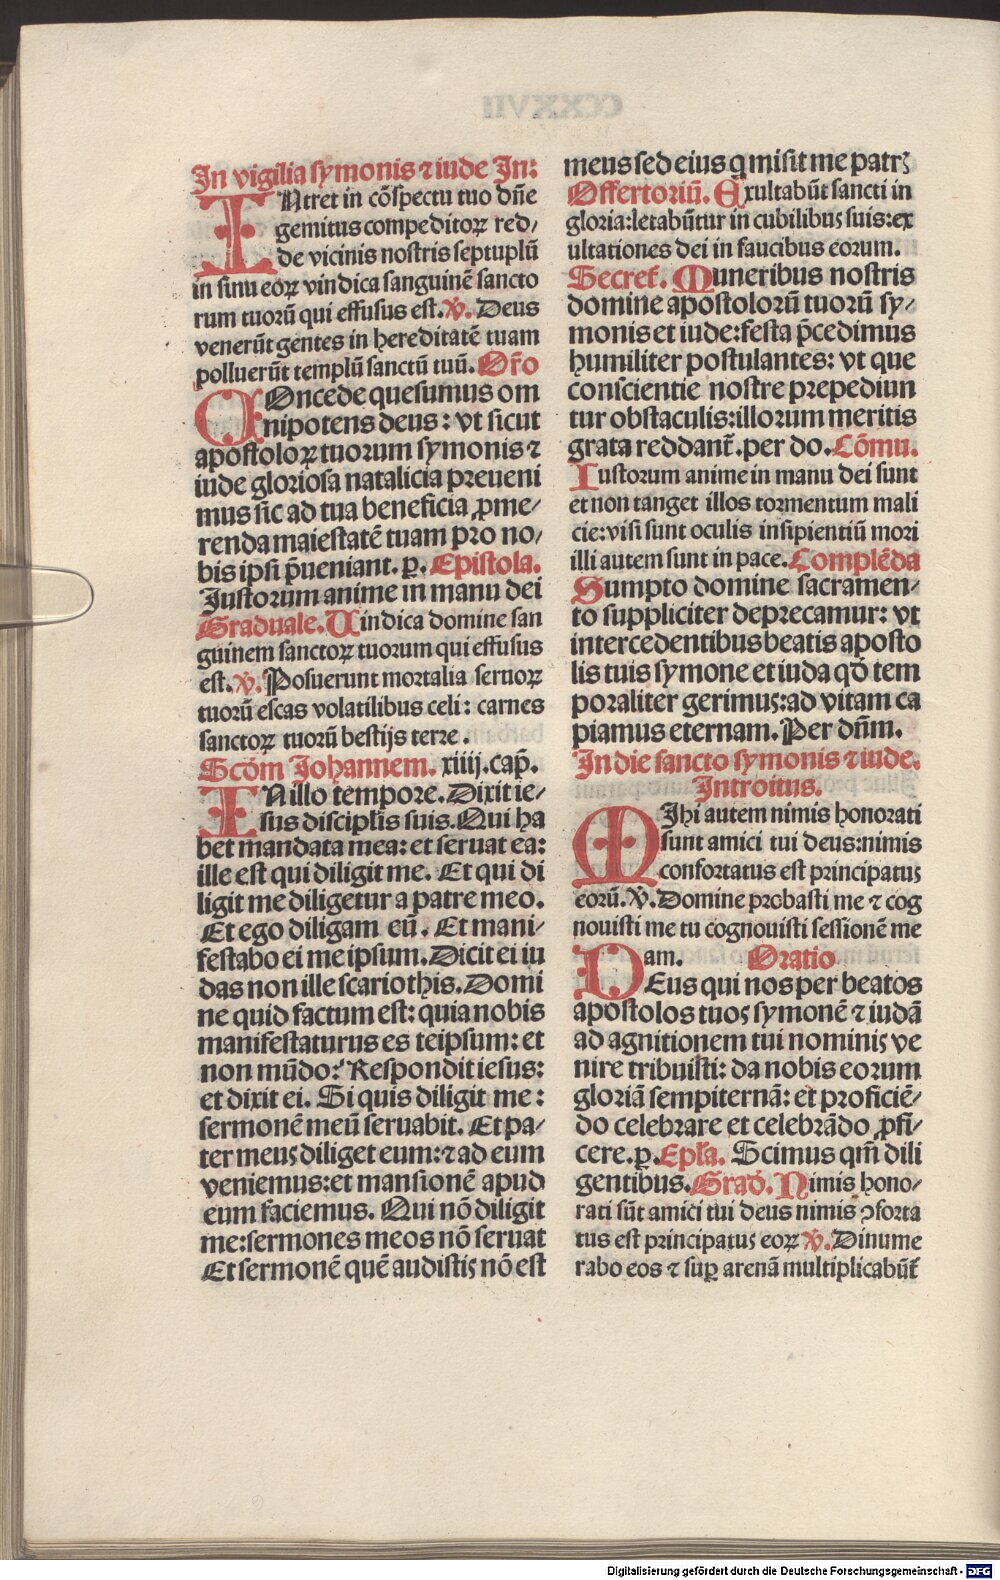 In vigilia symonis ⁊ iude In:
INtret in cõspectu tuo dñe
gemitus compeditoꝝ red/
de vicinis nostris septuplũ
in sinu eoꝝ vindica sanguinẽ sancto
rum tuorũ qui effusus est. ℣. Deus
venerũt gentes in hereditatẽ tuam
polluerũt templũ sanctũ tuũ. Or̃o
COncede quesumus om
nipotens deus: vt sicut
apostoloꝝ tuorum symonis ⁊
iude gloriosa natalicia preueni
mus sic ad tua beneficia ꝓme/
renda maiestatẽ tuam pro no/
bis ipsi p̃ueniant. p. Epistola.
Justorum anime in manu dei
Graduale. Uindica domine san
guinem sanctoꝝ tuorum qui effusus
est. ℣. Posuerunt mortalia seruoꝝ
tuorũ escas volatilibus celi: carnes
sanctoꝝ tuorũ bestijs terre.
Scd̃m Johannem. xiiij. cap̃.
IN illo tempore. Dixit ie/
sus discipl̃is suis. Qui ha
bet mandata mea: et seruat ea:
ille est qui diligit me. Et qui di
ligit me diligetur a patre meo.
Et ego diligam eũ. Et mani/
festabo ei me ipsum. Dicit ei iu
das non ille scariothis. Domi
ne quid factum est: quia nobis
manifestaturus es teipsum: et
non mũdo? Respondit iesus:
et dixit ei. Si quis diligit me:
sermonẽ meũ seruabit. Et pa/
ter meus diliget eum: ⁊ ad eum
veniemus: et mansionẽ apud
eum faciemus. Qui nõ diligit
me: sermones meos nõ seruat
Et sermonẽ quẽ audistis nõ est
meus sed eius q̃ misit me patrꝫ
Offertoriũ. Exultabũt sancti in
gloria: letabũtur in cubilibus suis: ex
ultationes dei in faucibus eorum.
Secret̃. Muneribus nostris
domine apostolorũ tuorũ sy/
monis et iude: festa p̃cedimus
humiliter postulantes: vt que
conscientie nostre prepediun
tur obstaculis: illorum meritis
grata reddant̃. per do. Cõmu.
Iustorum anime in manu dei sunt
et non tanget illos tormentum mali
cie: visi sunt oculis insipientiũ mori
illi autem sunt in pace. Complẽda
Sumpto domine sacramen/
to suppliciter deprecamur: vt
intercedentibus beatis aposto
lis tuis symone et iuda qd̃ tem
poraliter gerimus: ad vitam ca
piamus eternam. Per dñm.
In die sancto symonis ⁊ iude.
Introitus.
MIhi autem nimis honorati
sunt amici tui deus: nimis
confortatus est principatus
eorũ. ℣. Domine probasti me ⁊ cog
nouisti me tu cognouisti sessionẽ me
am. Oratio
DEus qui nos per beatos
apostolos tuos symonẽ ⁊ iudã
ad agnitionem tui nominis ve
nire tribuisti: da nobis eorum
gloriã sempiternã: et proficiẽ/
do celebrare et celebrãdo ꝓfi/
cere. p. Epl̃a. Scimus qm̃ dili
gentibus. Grad̃. Nimis hono/
rati sũt amici tui deus nimis ꝯforta
tus est principatus eoꝝ ℣. Dinume
rabo eos ⁊ suꝑ arenã multiplicabũt̃
Digitalisierung gefördert durch die Deutsche Forschungsgemeinschaft - DFG